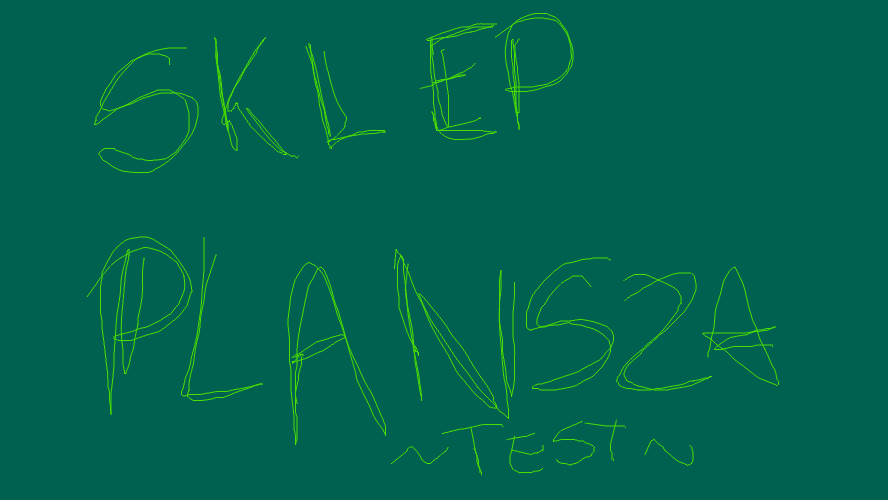 SKLEP
PLANSZA
~TEST~